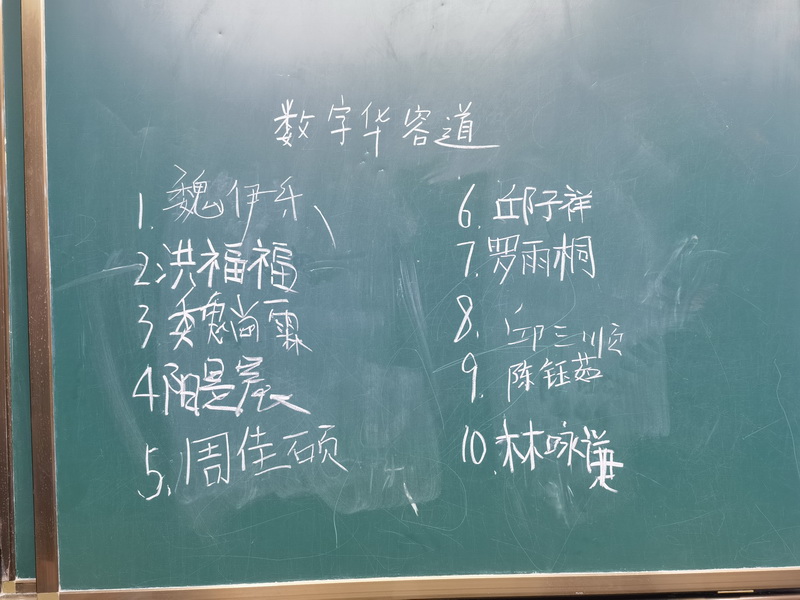 数字华容道
1. 魏伊乐
2. 洪福福
3 魏尚霖
4 阳是宸
5. 周佳硕
6. 邱子祥
7. 罗雨桐
8. 邱三顺
9. 陈钰茹
10. 林咏谦